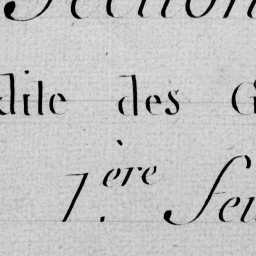 Section
dite des G
1.ère feu